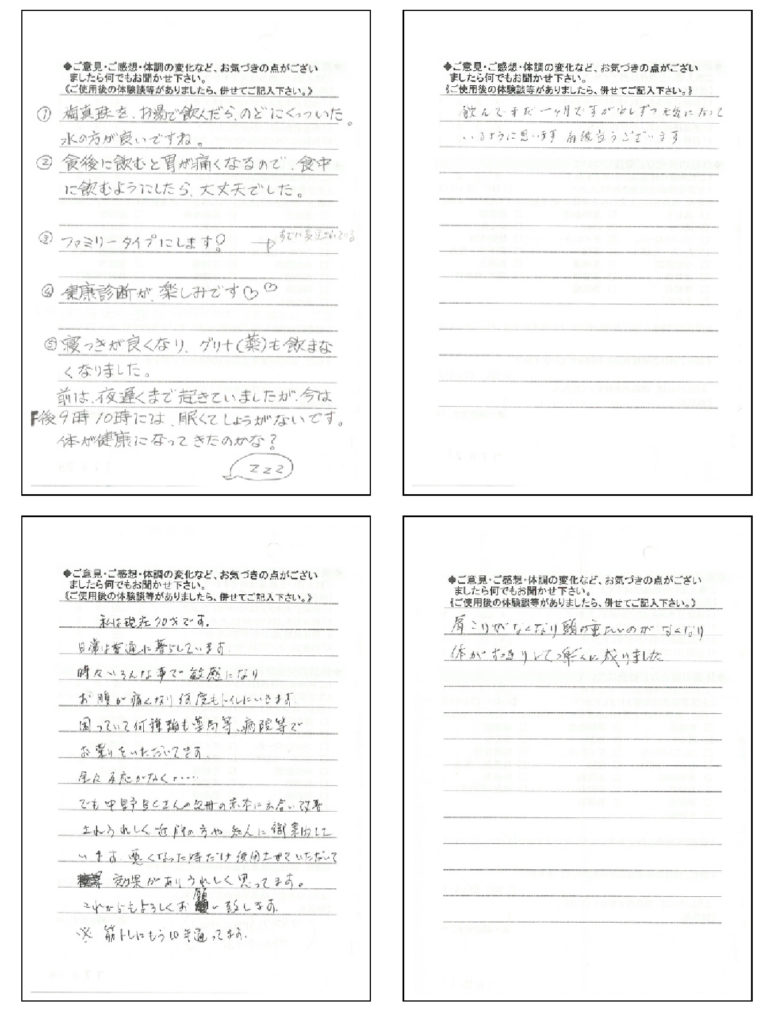 ◆ご意見・ご感想・体調の変化など、お気づきの点がござい
ましたら何でもお聞かせ下さい。
《ご使用後の体験談等がありましたら、併せてご記入下さい。》
① 真珠を、お湯で飲んだら、のどにくっついた。
水の方が良いですね。
② 食後に飲むと胃が痛くなるので、食中
に飲むようにしたら、大丈夫でした。
③ ファミリータイプにします!
④ 健康診断が、楽しみです♡♡
⑤ 寝つきが良くなり、グリナ(薬)も飲まな
くなりました。
前は、夜遅くまで起きていましたが、今は
後9時10時には、眠くてしょうがないです。
体が健康になってきたのかな?
zzz
◆ご意見・ご感想・体調の変化など、お気づきの点がござい
ましたら何でもお聞かせ下さい。
《ご使用後の体験談等がありましたら、併せてご記入下さい。》
飲んでまだ一ヶ月ですが少しずつ元気になって
いるように思います 有難うございます
◆ご意見・ご感想・体調の変化など、お気づきの点がござい
ましたら何でもお聞かせ下さい。
《ご使用後の体験談等がありましたら、併せてご記入下さい。》
私は現在70才です。
日常は普通に暮らしています
時々いろんな事で敏感になり
お腹が痛くなり何度もトイレにいきます
困っていて何種類も薬局等、病院等で
お薬りをいただいてます。
反応がなく……
でも
されうれしく近所の方や知人に
います 悪くなった時だけ使用させていただいて
効果がありうれしく思ってます。
これからもよろしくお願い致します
※ 筋トレにもう10年通ってます。
◆ご意見・ご感想・体調の変化など、お気づきの点がござい
ましたら何でもお聞かせ下さい。
《ご使用後の体験談等がありましたら、併せてご記入下さい。》
肩こりがなくなり頭が重たいのがなくなり
体がすっきりして楽に成りました